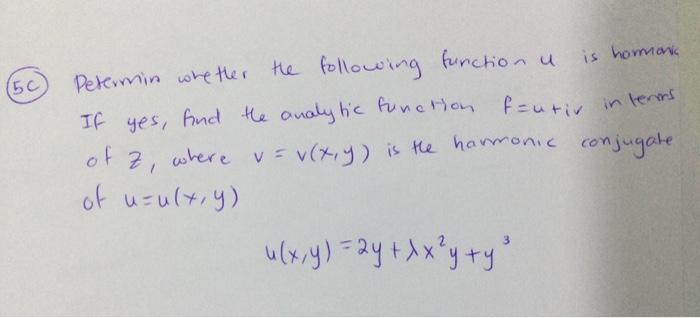 5C Petermin whether the following function u is harmonic
If yes, find the analytic function f=u+iv in terms
of z, where v = v(x,y) is the harmonic conjugate
of u=u(x,y)
u(x,y) = 2y + λx²y + y³